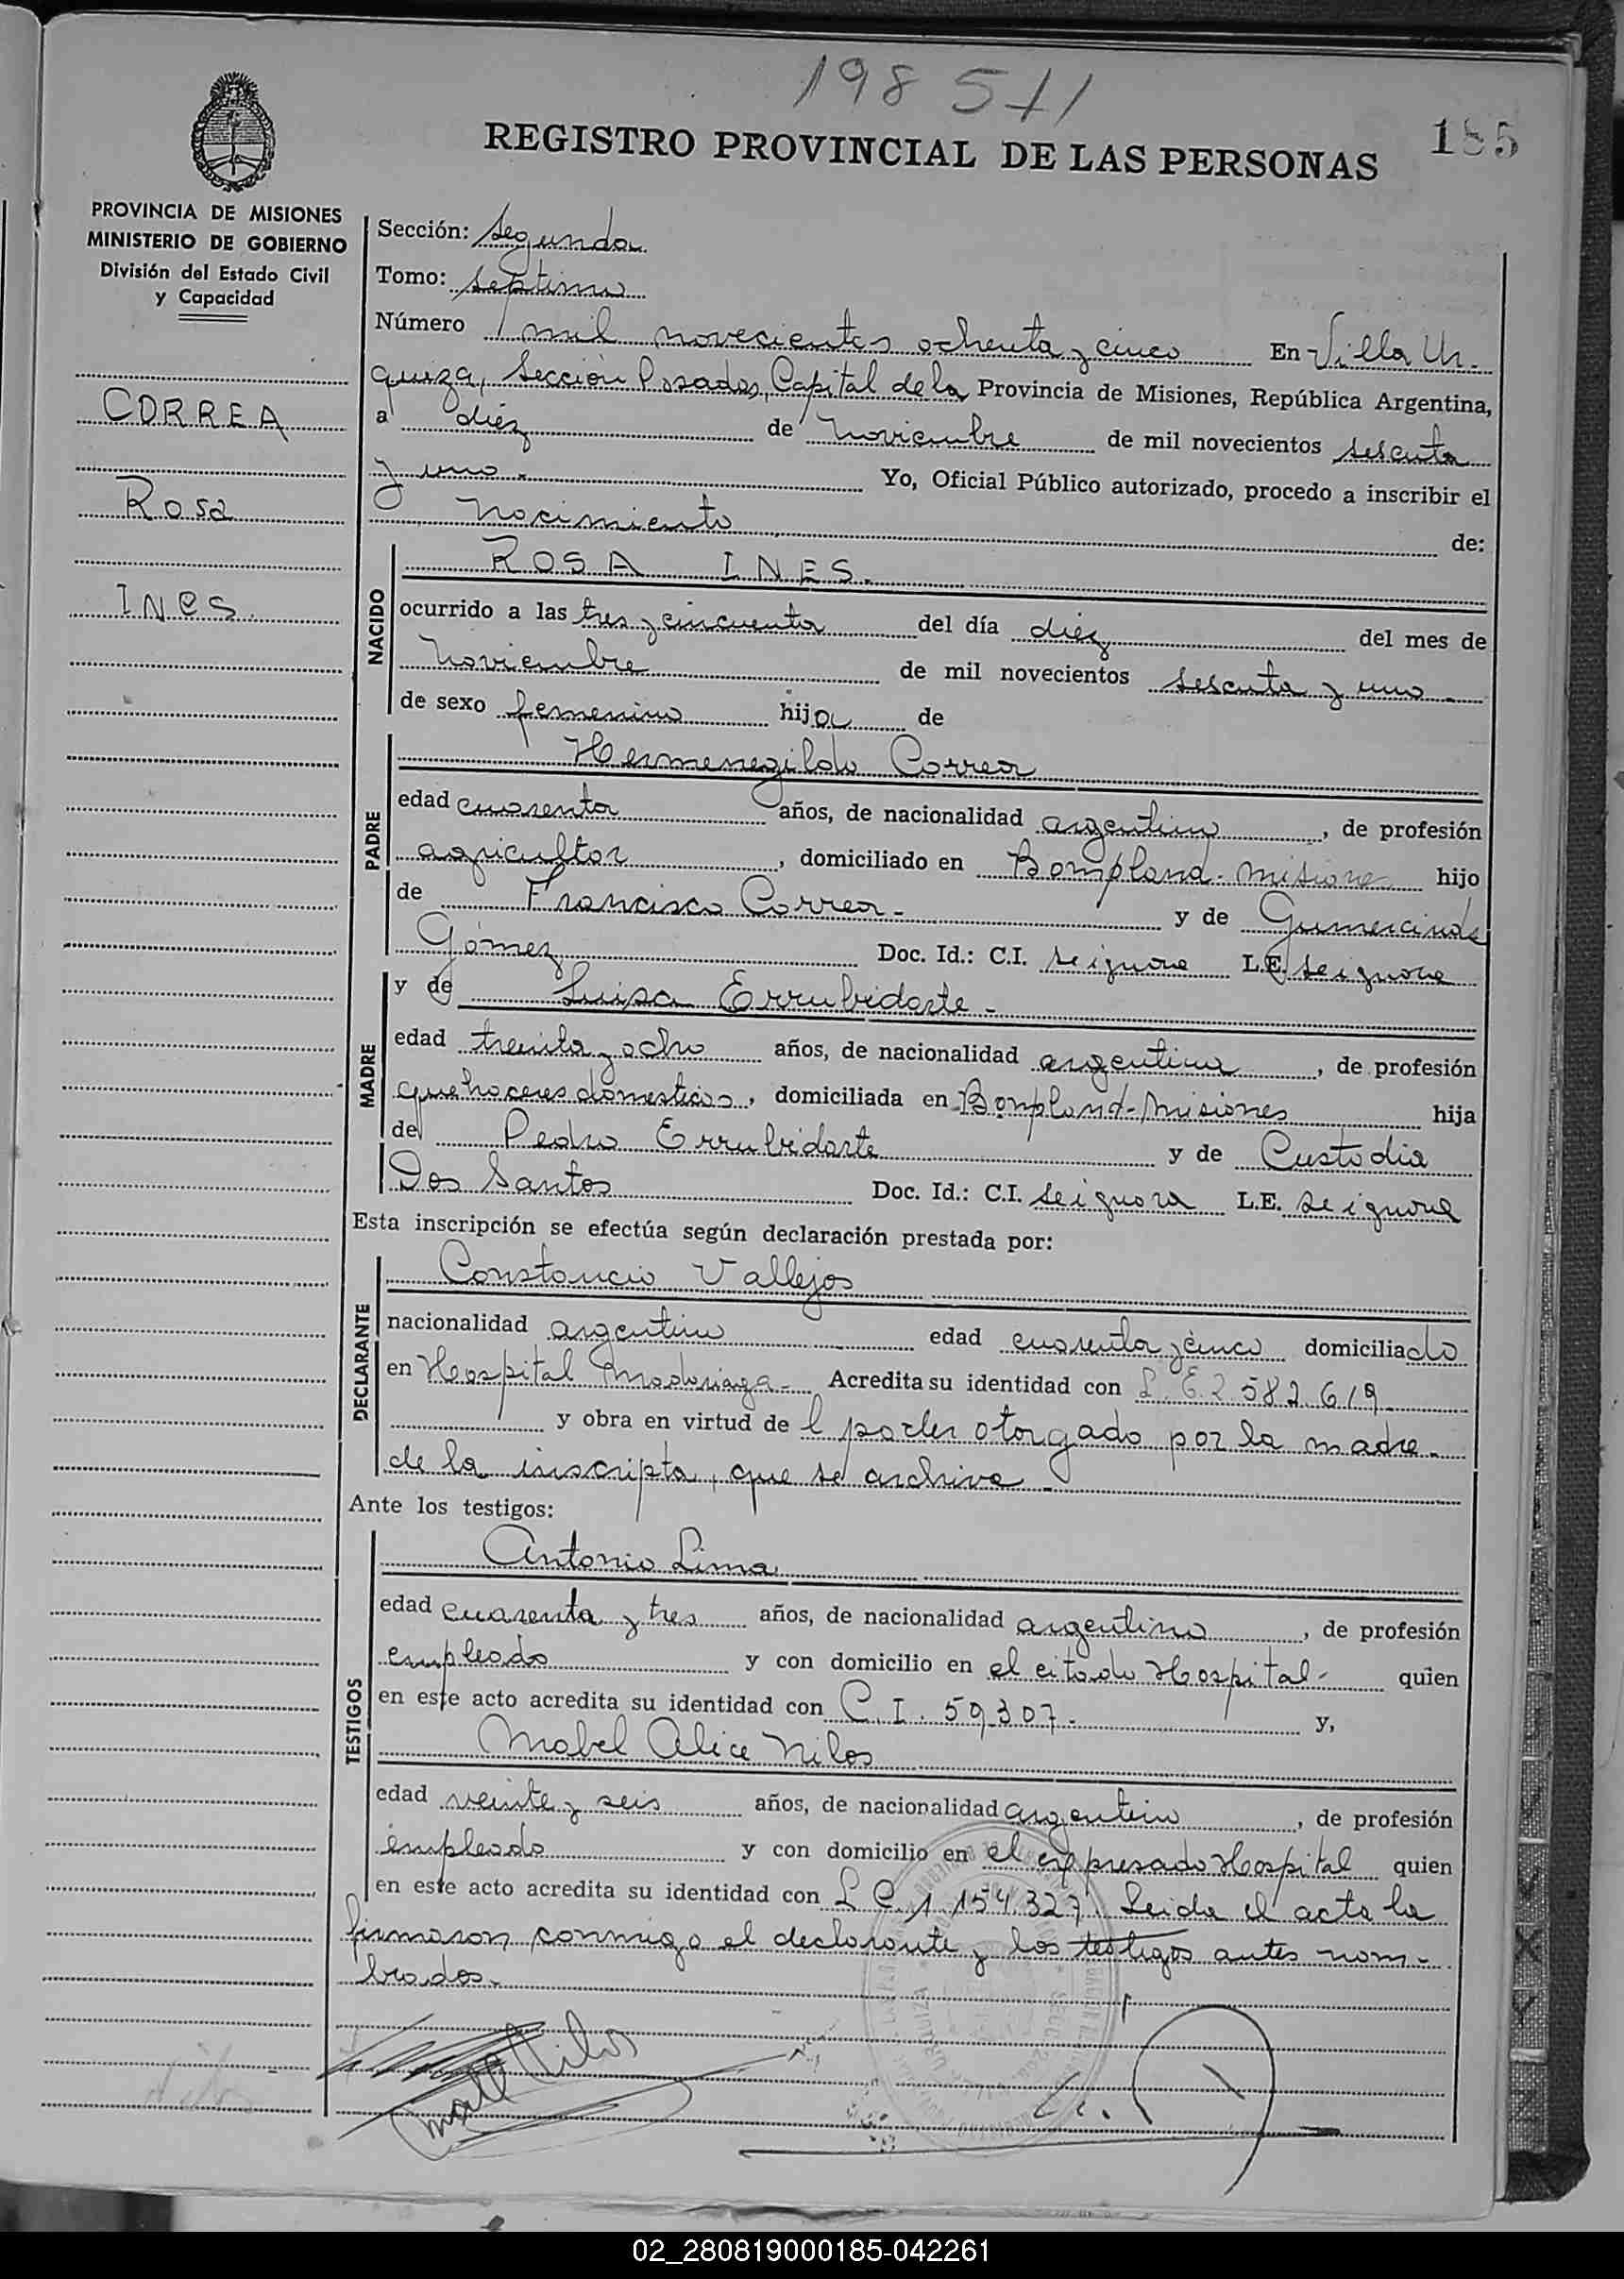 198 5 1/
REGISTRO PROVINCIAL DE LAS PERSONAS
185
PROVINCIA DE MISIONES
MINISTERIO DE GOBIERNO
División del Estado Civil
y Capacidad
CORREA
Rosa
INes.
Sección: Segunda
Tomo: septimo
Número mil novecientos ochenta y cinco En Villa Ur-
quiza, Sección Posadas, Capital de la Provincia de Misiones, República Argentina,
a diéz de Noviembre de mil novecientos sesenta
y uno. Yo, Oficial Público autorizado, procedo a inscribir el
Nacimiento de:
NACIDO
ROSA INES.
ocurrido a las tres y cincuenta del día diéz del mes de
Noviembre de mil novecientos sesenta y uno
de sexo femenino hija de
PADRE
Hermenegildo Correa
edad cuarenta años, de nacionalidad argentino, de profesión
agricultor, domiciliado en Bompland-Misiones hijo
de Francisco Correa- y de Gumercinda
Gómez Doc. Id.: C.I. se ignora L.E. se ignora
MADRE
y de Luisa Errubidarte-
edad treinta y ocho años, de nacionalidad argentina, de profesión
quehaceres domesticos, domiciliada en Bompland-Misiones hija
de Pedro Errubidarte y de Custodia
Dos Santos Doc. Id.: C.I. se ignora L.E. se ignora
Esta inscripción se efectúa según declaración prestada por:
DECLARANTE
Constancio Vallejos
nacionalidad argentino edad cuarenta y cinco domiciliado
en Hospital Madariaga- Acredita su identidad con L.E. 2.582.619
y obra en virtud de l poder otorgado por la madre
de la inscripta, que se archiva-
Ante los testigos:
TESTIGOS
Antonio Lima
edad cuarenta y tres años, de nacionalidad argentino, de profesión
empleado y con domicilio en el citado Hospital- quien
en este acto acredita su identidad con C.I. 59.307- y,
Mabel Alice Nilos
edad veinte y seis años, de nacionalidad argentino, de profesión
empleado y con domicilio en el expresado Hospital quien
en este acto acredita su identidad con L C. 1.154.327. Leida el acta la
firmaron conmigo el declarante y los testigos antes nom-
brados-
02_280819000185-042261